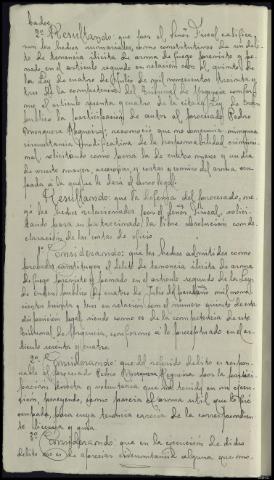 bados.
2º Resultando: que por el Señor Fiscal califica-
ron los hechos sumariales, como constitutivos de un deli-
to de tenencia ilícita de arma de fuego previsto y pe-
nado, en el artículo segundo en relación con el quinto de
la Ley de cuatro de Julio de mil novecientos treinta y
tres de la competencia del Tribunal de Urgencia confor-
me al artículo sesenta y cuatro de la citada Ley de Orden
público la participación de autor al procesado Pedro
reconoció que no concurría ninguna
circunstancia modificativa de la responsabilidad criminal,
solicitando como pena la de cuatro meses y un día
de arresto mayor, accesorias, y costas y comiso del arma ocu-
pada a la que se le dará el curso legal.
Resultando: que la defensa del procesado, ne-
gó los hechos relacionados por el Señor Fiscal, solici-
tando para su patrocinado, la libre absolución con de-
claración de las costas de oficio.
1º Considerando: que los hechos admitidos como
probados constituyen el delito de tenencia ilícita de arma
de fuego previsto y penado en el artículo segundo de la Ley
de cuatro de Julio de mil nove-
cientos treinta y tres en relación con el número quinto de esta
disposición legal siendo como es de la competencia de este
Tribunal de Urgencia, conforme a lo preceptuado en el ar-
tículo sesenta y cuatro.
2º Considerando: que del referido delito es respon-
sable el procesado Pedro por la partici-
pación directa y voluntaria que ha tenido en su ejecu-
ción, poseyendo, como poseía el arma útil que le fué
ocupada, para cuya tenencia carecía de la correspondien-
te licencia y guía.
3º Considerando: que en la ejecución de dicho
delito no es de apreciar circunstancia alguna que mo-